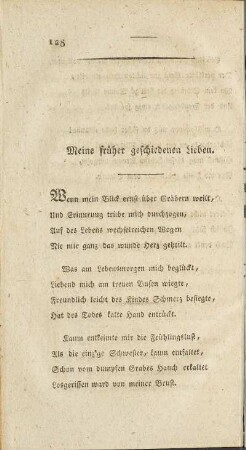 128
Meine früher geschiedenen Lieben.
Wenn mein Blick ernst über Gräbern weilt,
Und Erinnrung trübe mich durchzogen,
Auf des Lebens wechselreichen Wogen
Nie mir ganz das wunde Herz geheilt.
Was am Lebensmorgen mich beglückt,
Liebend mich am treuen Busen wiegte,
Freundlich leicht des Kindes Schmerz besiegte,
Hat des Todes kalte Hand entrückt.
Kaum entkeimte mir die Frühlingslust,
Als die einz'ge Schwester, kaum entfaltet,
Schon vom dumpfen Grabes Hauch erkaltet
Losgerissen ward von meiner Brust.